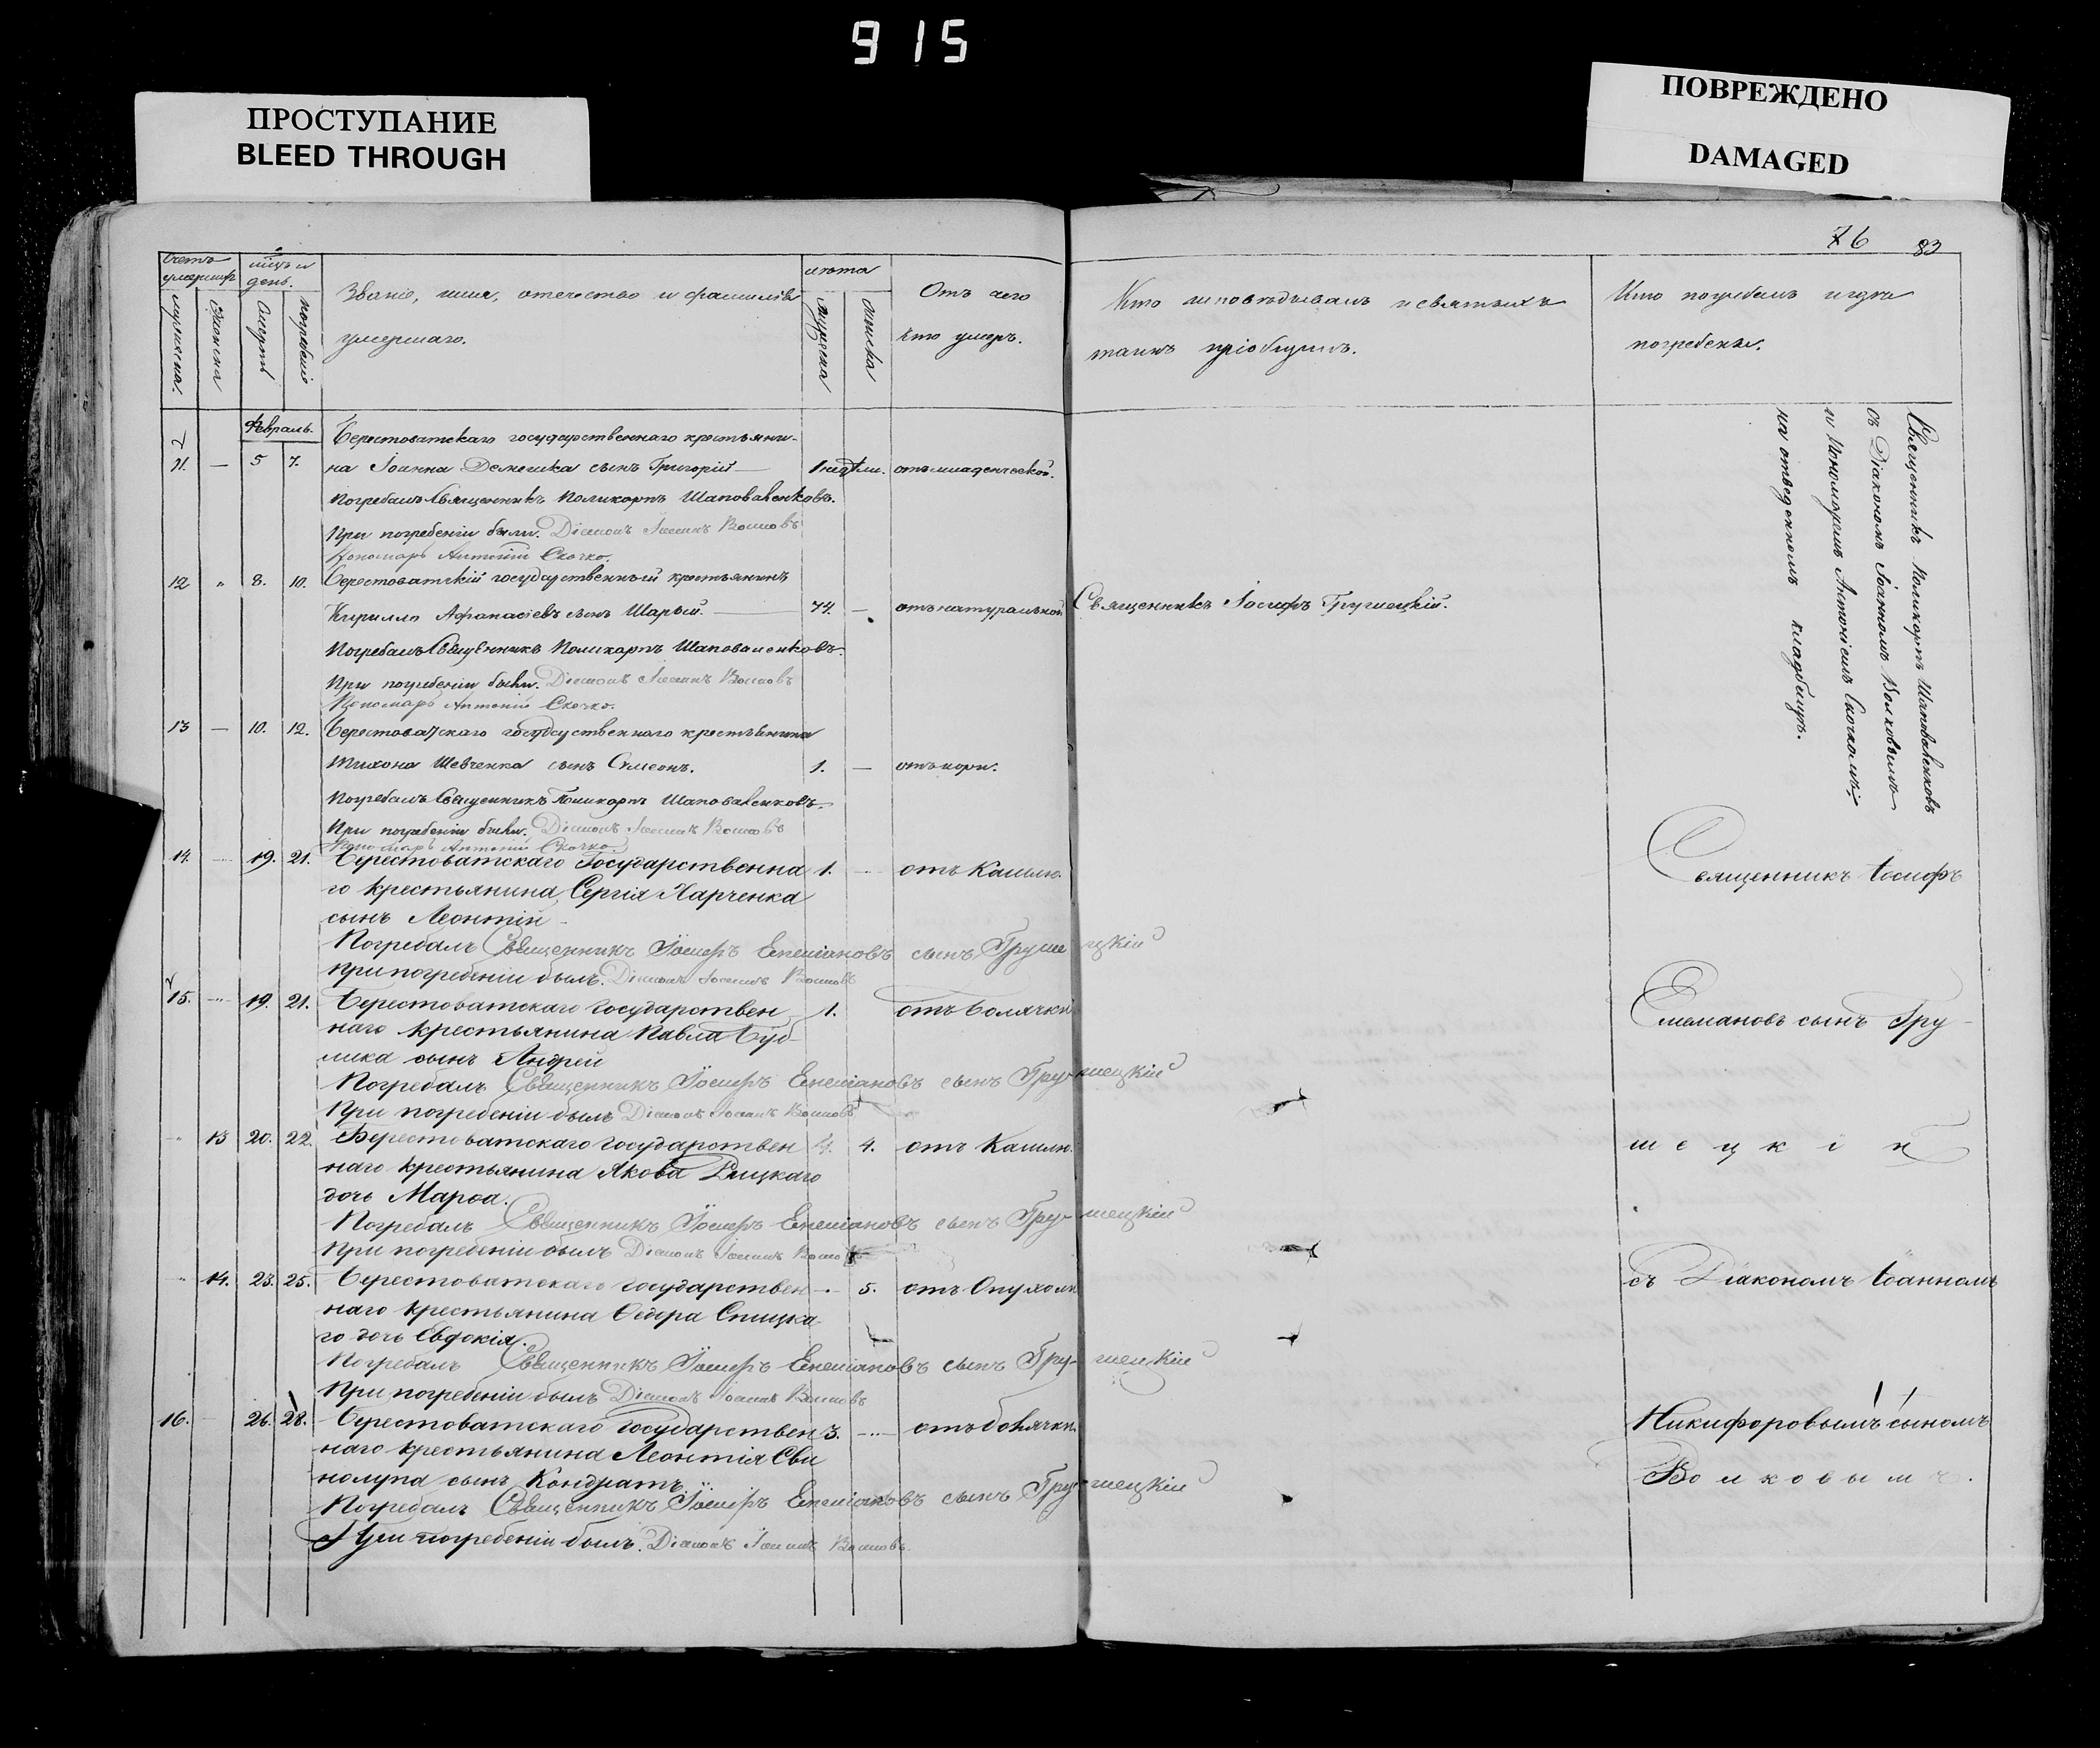 915
ПРОСТУПАНИЕ
BLEED THROUGH
ПОВРЕЖДЕНО
DAMAGED
76 83
Счетъ умершихъ
мужеска.
женска
день.
Смерти
погребенія
Званіе, имя, отечество и фамилія
умершаго.
лѣта
мужеска
женска
Отъ чего
кто умеръ.
Кто исповѣдывалъ и святыхъ
таинъ пріобщилъ.
Кто погребалъ и гдѣ
погребены.
Февраль.
Берестоватскаго государственнаго крестьяни-
11. — 5 7. на Іоанна сынъ Григорій — 1 недѣли. отъ младенческой.
Погребалъ Священникъ Поликарпъ Шаповаленковъ.
При погребеніи были. Діаконъ Іоаннъ Волковъ
Пономарь Антоній Скочко.
12 " 8. 10. Берестоватскій государственный крестьянинъ
Кирилло Афанасіевъ сынъ Шарый. — 74. — отъ натуральной Священникъ Іосифъ Грушецкій.
Погребалъ Священникъ Поликарпъ Шаповаленковъ.
При погребеніи были. Діаконъ Іоаннъ Волковъ
Пономарь Антоній Скочко.
13 — 10. 12. Берестоватскаго государственнаго крестьянина
Тихона Шевченка сынъ Симеонъ. 1. — отъ кори.
Погребалъ Священникъ Поликарпъ Шаповаленковъ.
При погребеніи были. Діаконъ Іоаннъ Волковъ
Пономарь Антоній Скочко
Священникъ Поликарпъ Шаповаленковъ
съ Діакономъ Іоанномъ Волковымъ
и Пономаремъ Антоніемъ Скочкомъ
на отведенномъ кладбищѣ.
14. — 19. 21. Берестоватскаго Государственна 1. — отъ Кашлю.
го крестьянина Сергія Харченка
сынъ Леонтій
Погребалъ Священникъ Іосифъ Емеліановъ сынъ Грушецкій
при погребеніи былъ. Діаконъ Іоаннъ Волковъ
15. — 19. 21. Берестоватскаго государствен 1. отъ болячки
наго крестьянина Павла Буб-
лика сынъ Андрей
Погребалъ Священникъ Іосифъ Емеліановъ сынъ Грушецкій
При погребеніи былъ Діаконъ Іоаннъ Волковъ
" 13 20. 22. Берестоватскаго государствен 4. отъ Кашлю.
наго крестьянина Якова
дочь Марѳа.
Погребалъ Священникъ Іосифъ Емеліановъ сынъ Грушецкій
При погребеніи былъ Діаконъ Іоаннъ
" 14. 23. 25. Берестоватскаго государствен — 5. отъ Опухоли
наго крестьянина Ѳедора Спицка
го дочь Евдокія.
Погребалъ Священникъ Іосифъ Емеліановъ сынъ Грушецкій
При погребеніи былъ Діаконъ Іоаннъ Волковъ
16. — 26. 28. Берестоватскаго государствен 3. — отъ болячки
наго крестьянина Леонтія Сви
нолупа сынъ Кондратъ.
Погребалъ Священникъ Іосифъ Емеліановъ сынъ Грушецкій
При погребеніи былъ. Діаконъ Іоаннъ Волковъ.
Священникъ Іосифъ
Емеліановъ сынъ Гру-
шецкій
съ Діакономъ Іоанномъ
Никифоровымъ сыномъ
Волковымъ.